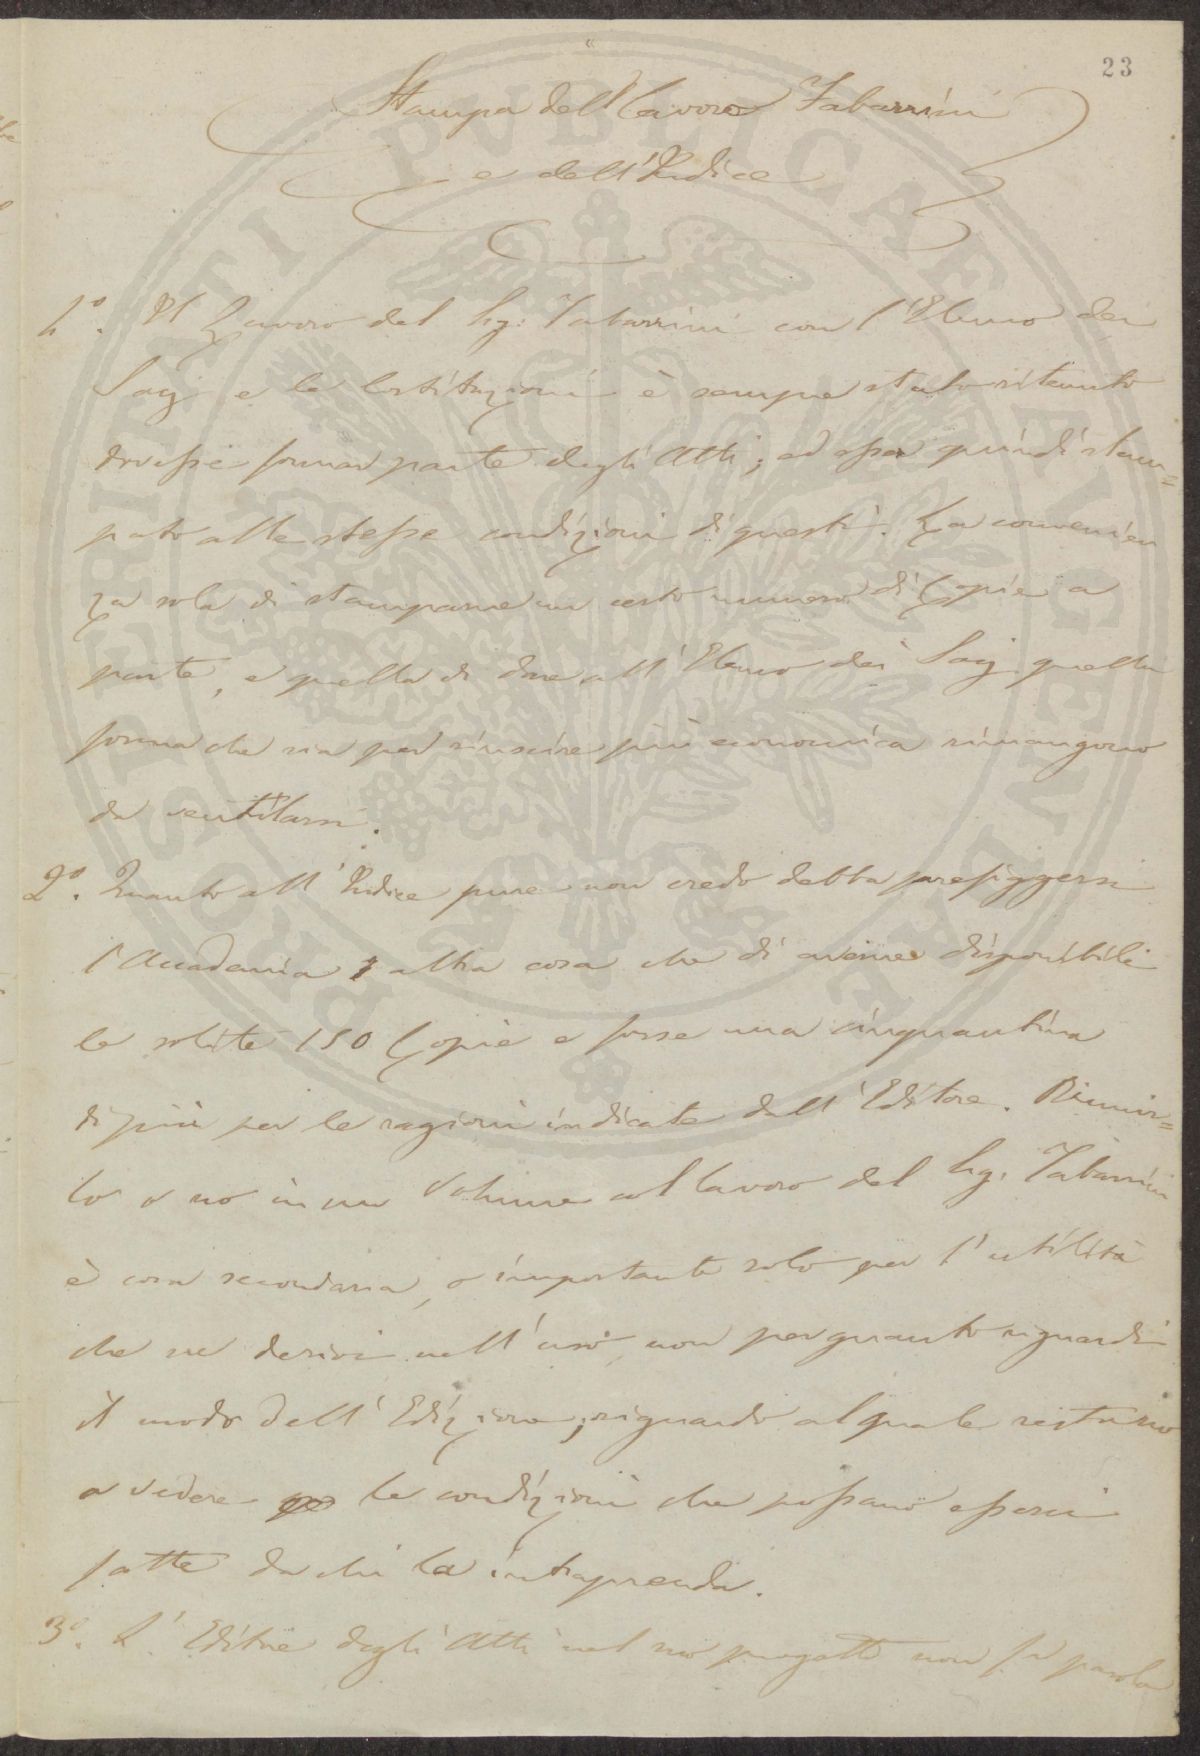 23
Stampa del Lavoro Tabarrini
e dell'Indice
1.° Il Lavoro del Sig: Tabarrini con l'Elenco dei
Socj e le Costituzioni è sempre stato ritenuto
dovesse formar parte degli Atti; ed esser quindi stam=
pato alle stesse condizioni di questi. La convenien
za sola di stamparne un certo numero di Copie a
parte, e quella di dare all'Elenco dei Socj quella
forma che sia per riuscire più economica rimangono
da ventilarsi.
2.° Quanto all'Indice pure non credo debba prefiggersi
l'Accademia altra cosa che di averne disponibili
le solite 150 Copie e forse una cinquantina
di più per le ragioni indicate dall'Editore. Riunir=
lo o no in un Volume col lavoro del Sig. Tabarrini
è cosa secondaria, o importante solo per l'utilità
che ne derivi nell'uso, non per quanto riguardi
il modo dell'Edizione; riguardo al quale restano
a vedere le condizioni che possano esserci
fatte da chi la intraprenda.
3.° L'Editore degli Atti nel suo progetto non fa parola